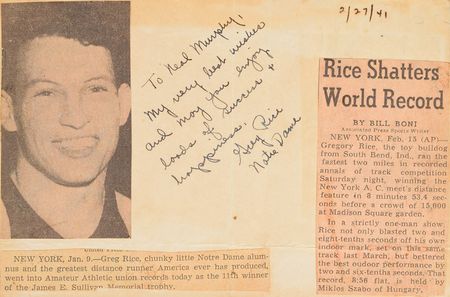 2/27/41
To Neal Murphy,
My very best wishes
and may you enjoy
loads of success +
happiness.
Greg Rice
Notre Dame
NEW YORK, Jan. 9.—Greg Rice, chunky little Notre Dame alum-
nus and the greatest distance runner America ever has produced,
went into Amateur Athletic union records today as the 11th winner
of the James E. Sullivan Memorial trophy.
Rice Shatters
World Record
BY BILL BONI
Associated Press Sports Writer
NEW YORK, Feb. 15 (AP)—
Gregory Rice, the toy bulldog
from South Bend, Ind., ran the
fastest two miles in recorded
annals of track competition
Saturday night, winning the
New York A. C. meet's distance
feature in 8 minutes 53.4 sec-
onds before a crowd of 15,000
at Madison Square garden.
In a strictly one-man show,
Rice not only blasted two and
eight-tenths seconds off his own
indoor mark, set on this same
track last March, but bettered
the best outdoor performance by
two and six-tenths seconds. That
record, 8:56 flat, is held by
Miklos Szabo of Hungary.